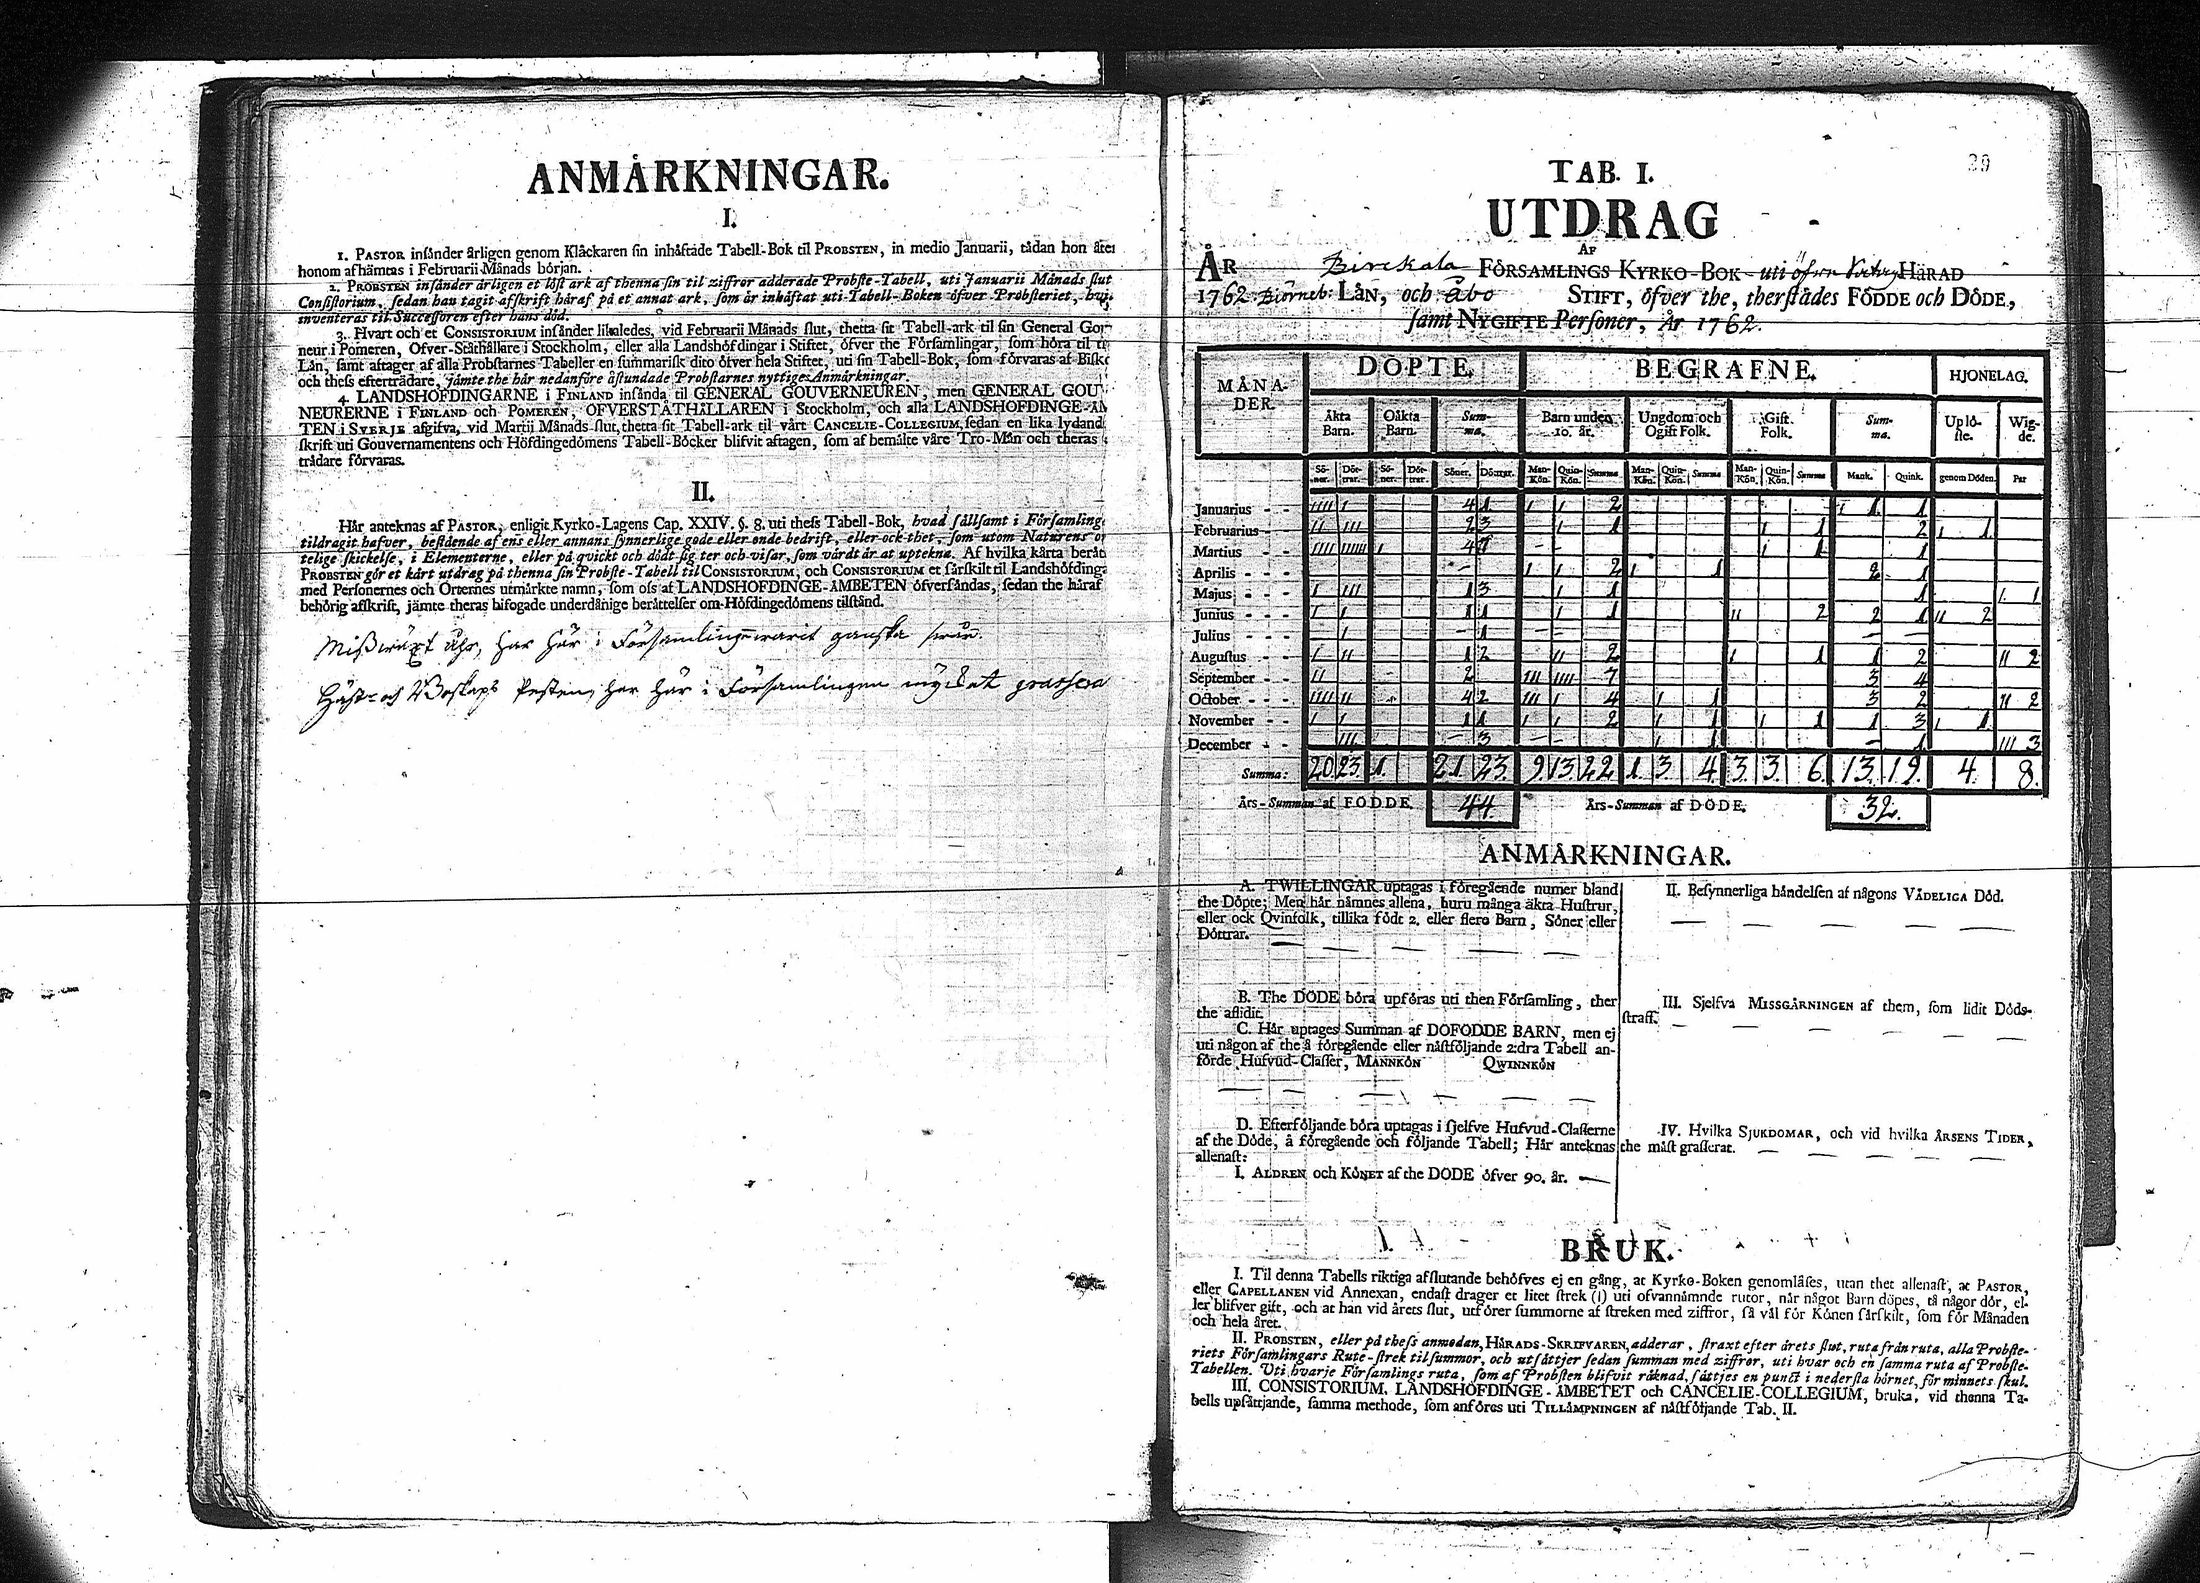 ANMÄRKNINGAR.
I.
1. PASTOR insänder årligen genom Kläckaren sin inhäftade Tabell-Bok til PROBSTEN, in medio Januarii, tådan hon åter
honom afhämtas i Februarii Månads början.
2. PROBSTEN insänder årligen et löst ark af thenna sin til ziffror adderade Probste-Tabell, uti Januarii Månads slut
Consistorium, sedan han tagit afskrift häraf på et annat ark, som är inhäftat uti Tabell-Boken öfver Probsteriet,
inventeras til Successoren efter hans död.
3. Hvart och et CONSISTORIUM insänder likaledes, vid Februarii Månads slut, thetta sit Tabell-ark til sin General
neur i Pomeren, Ofver-Ståthållare i Stockholm, eller alla Landshöfdingar i Stiftet, öfver the Församlingar, som höra til
Län, samt aftager af alla Probstarnes Tabeller en summarisk dito öfver hela Stiftet, uti sin Tabell-Bok, som förvaras af
och thess efterträdare, jämte the här nedanföre åstundade Probstarnes nyttige Anmärkningar.
4. LANDSHÖFDINGARNE i FINLAND insända til GENERAL GOUVERNEUREN, men GENERAL GOU
NEURERNE i FINLAND och POMEREN, ÖFVERSTÅTHÅLLAREN i Stockholm, och alla LANDSHÖFDINGE-ÄM
TEN i SVERJE afgifva, vid Martii Månads slut, thetta sit Tabell-ark til vårt CANCELIE-COLLEGIUM, sedan en lika lydand
skrift uti Gouvernamentens och Höfdingedömens Tabell-Böcker blifvit aftagen, som af bemälte våre Tro-Män och theras
trädare förvaras.
II.
Här anteknas af PASTOR, enligit Kyrko-Lagens Cap. XXIV. §. 8. uti thess Tabell-Bok, hvad sällsamt i Församling
tildragit hafver, bestående af ens eller annans synnerlige gode eller onde bedrift, eller ock thet, som utom Naturens or
telige skickelse, i Elementerne, eller på qvickt och dödt sig ter och visar, som värdt är at uptekna. Af hvilka kårta berät
PROBSTEN gör et kårt utdrag på thenna sin Probste-Tabell til CONSISTORIUM, och CONSISTORIUM et särskilt til Landshöfding
med Personernes och Orternes utmärkte namn, som oss af LANDSHÖFDINGE-ÄMBETEN öfversändas, sedan the häraf
behörig afskrift, jämte theras bifogade underdånige berättelser om Höfdingedömens tilstånd.
Missväxt åhr, har här i Församlingen warit ganska
Häst- och Boskaps Pesten, har här i Församlingen mycket grassera
39
TAB. I.
UTDRAG
AF
ÅR Birckala FÖRSAMLINGS KYRKO-BOK uti öfre HÄRAD
1762. Biörneb: LÄN, och Åbo STIFT, öfver the, therstädes FÖDDE och DÖDE,
samt NYGIFTE Personer, År 1762.
MÅNA-DER. DÖPTE. BEGRAFNE. HJONELAG.
Äkta Barn. Oäkta Barn. Summa. Barn unden 10. år. Ungdom och Ogift Folk. Gift Folk. Summa. Uplöste. Wigde.
Söner. Döttrar. Söner. Döttrar. Söner. Döttrar. Man-Kön. Quin-Kön. Summa Man-Kön. Quin-Kön. Summa Man-Kön. Quin-Kön. Summa Mank. Quink. genom Döden. Par
Januarius - - IIII I 4 1 I I 2 1 1
Februarius - - II III 2 3 I 1 I 1 2 I 1
Martius - - - I 4 - - I 1 1
Aprilis - - - - I I 2 I 1 2 1
Majus - - - I III 1 3 I 1 1 I 1
Junius - - - I I 1 1 II 2 2 1 II 2
Julius - - - I - 1 - - - -
Augustus - - I II 1 2 II 2 I 1 1 2 II 2
September - - II 2 III IIII 7 3 4
October - - - IIII II 4 2 III I 4 I 1 3 2 II 2
November - - I I 1 1 I I 2 I 1 I 1 1 3 I 1
December - - III - 3 - - I 1 - 1 III 3
Summa: 20 23 1. 21. 23. 9. 13. 22 1 3. 4 3. 3. 6. 13. 19. 4. 8.
Års-Summan af FÖDDE. 44. Års-Summan af DÖDE. 32.
ANMÄRKNINGAR.
A. TWILLINGAR uptagas i föregående numer bland
the Döpte; Men här nämnes allena, huru många äkta Hustrur,
eller ock Qvinfolk, tillika födt 2. eller flere Barn, Söner eller
Döttrar.
B. The DÖDE böra upföras uti then Församling, ther
the aflidit.
C. Här uptages Summan af DÖFÖDDE BARN, men ej
uti någon af the å föregående eller nästföljande 2:dra Tabell an-
förde Hufvud-Classer, MANNKÖN QWINNKÖN
D. Efterföljande böra uptagas i sjelfve Hufvud-Classerne
af the Döde, å föregående och följande Tabell; Här anteknas
allenast:
I. ÅLDREN och KÖNET af the DÖDE öfver 90. år.
II. Besynnerliga händelsen af någons VÅDELIGA Död.
III. Sjelfva MISSGÄRNINGEN af them, som lidit Döds-
straff.
IV. Hvilka SJUKDOMAR, och vid hvilka ÅRSENS TIDER,
the mäst grasserat.
BRUK.
I. Til denna Tabells riktiga afslutande behöfves ej en gång, at Kyrko-Boken genomläses, utan thet allenast, at PASTOR,
eller CAPELLANEN vid Annexan, endast drager et litet strek (I) uti ofvannämnde rutor, när något Barn döpes, tå någor dör, el-
ler blifver gift, och at han vid årets slut, utförer summorne af streken med ziffror, så väl för Könen särskilt, som för Månaden
och hela året.
II. PROBSTEN, eller på thess anmodan, HÄRADS-SKRIFVAREN, adderar, straxt efter årets slut, ruta från ruta, alla Probste-
riets Församlingars Rute-strek til summor, och utsättjer sedan summan med ziffror, uti hvar och en samma ruta af Probste-
Tabellen. Uti hvarje Församlings ruta, som af Probsten blifvit räknad, sättjes en punct i nedersta hörnet, för minnets skul.
III. CONSISTORIUM, LANDSHÖFDINGE-ÄMBETET och CANCELIE-COLLEGIUM, bruka, vid thenna Ta-
bells upsättjande, samma methode, som anföres uti TILLÄMPNINGEN af nästföljande Tab. II.